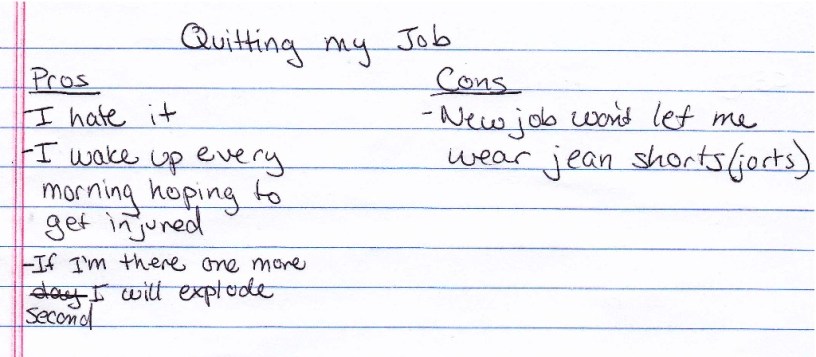 Quitting my Job
Pros
-I hate it
-I wake up every
morning hoping to
get injured
-If I'm there one more
day I will explode
second
Cons
-New job won't let me
wear jean shorts (jorts)